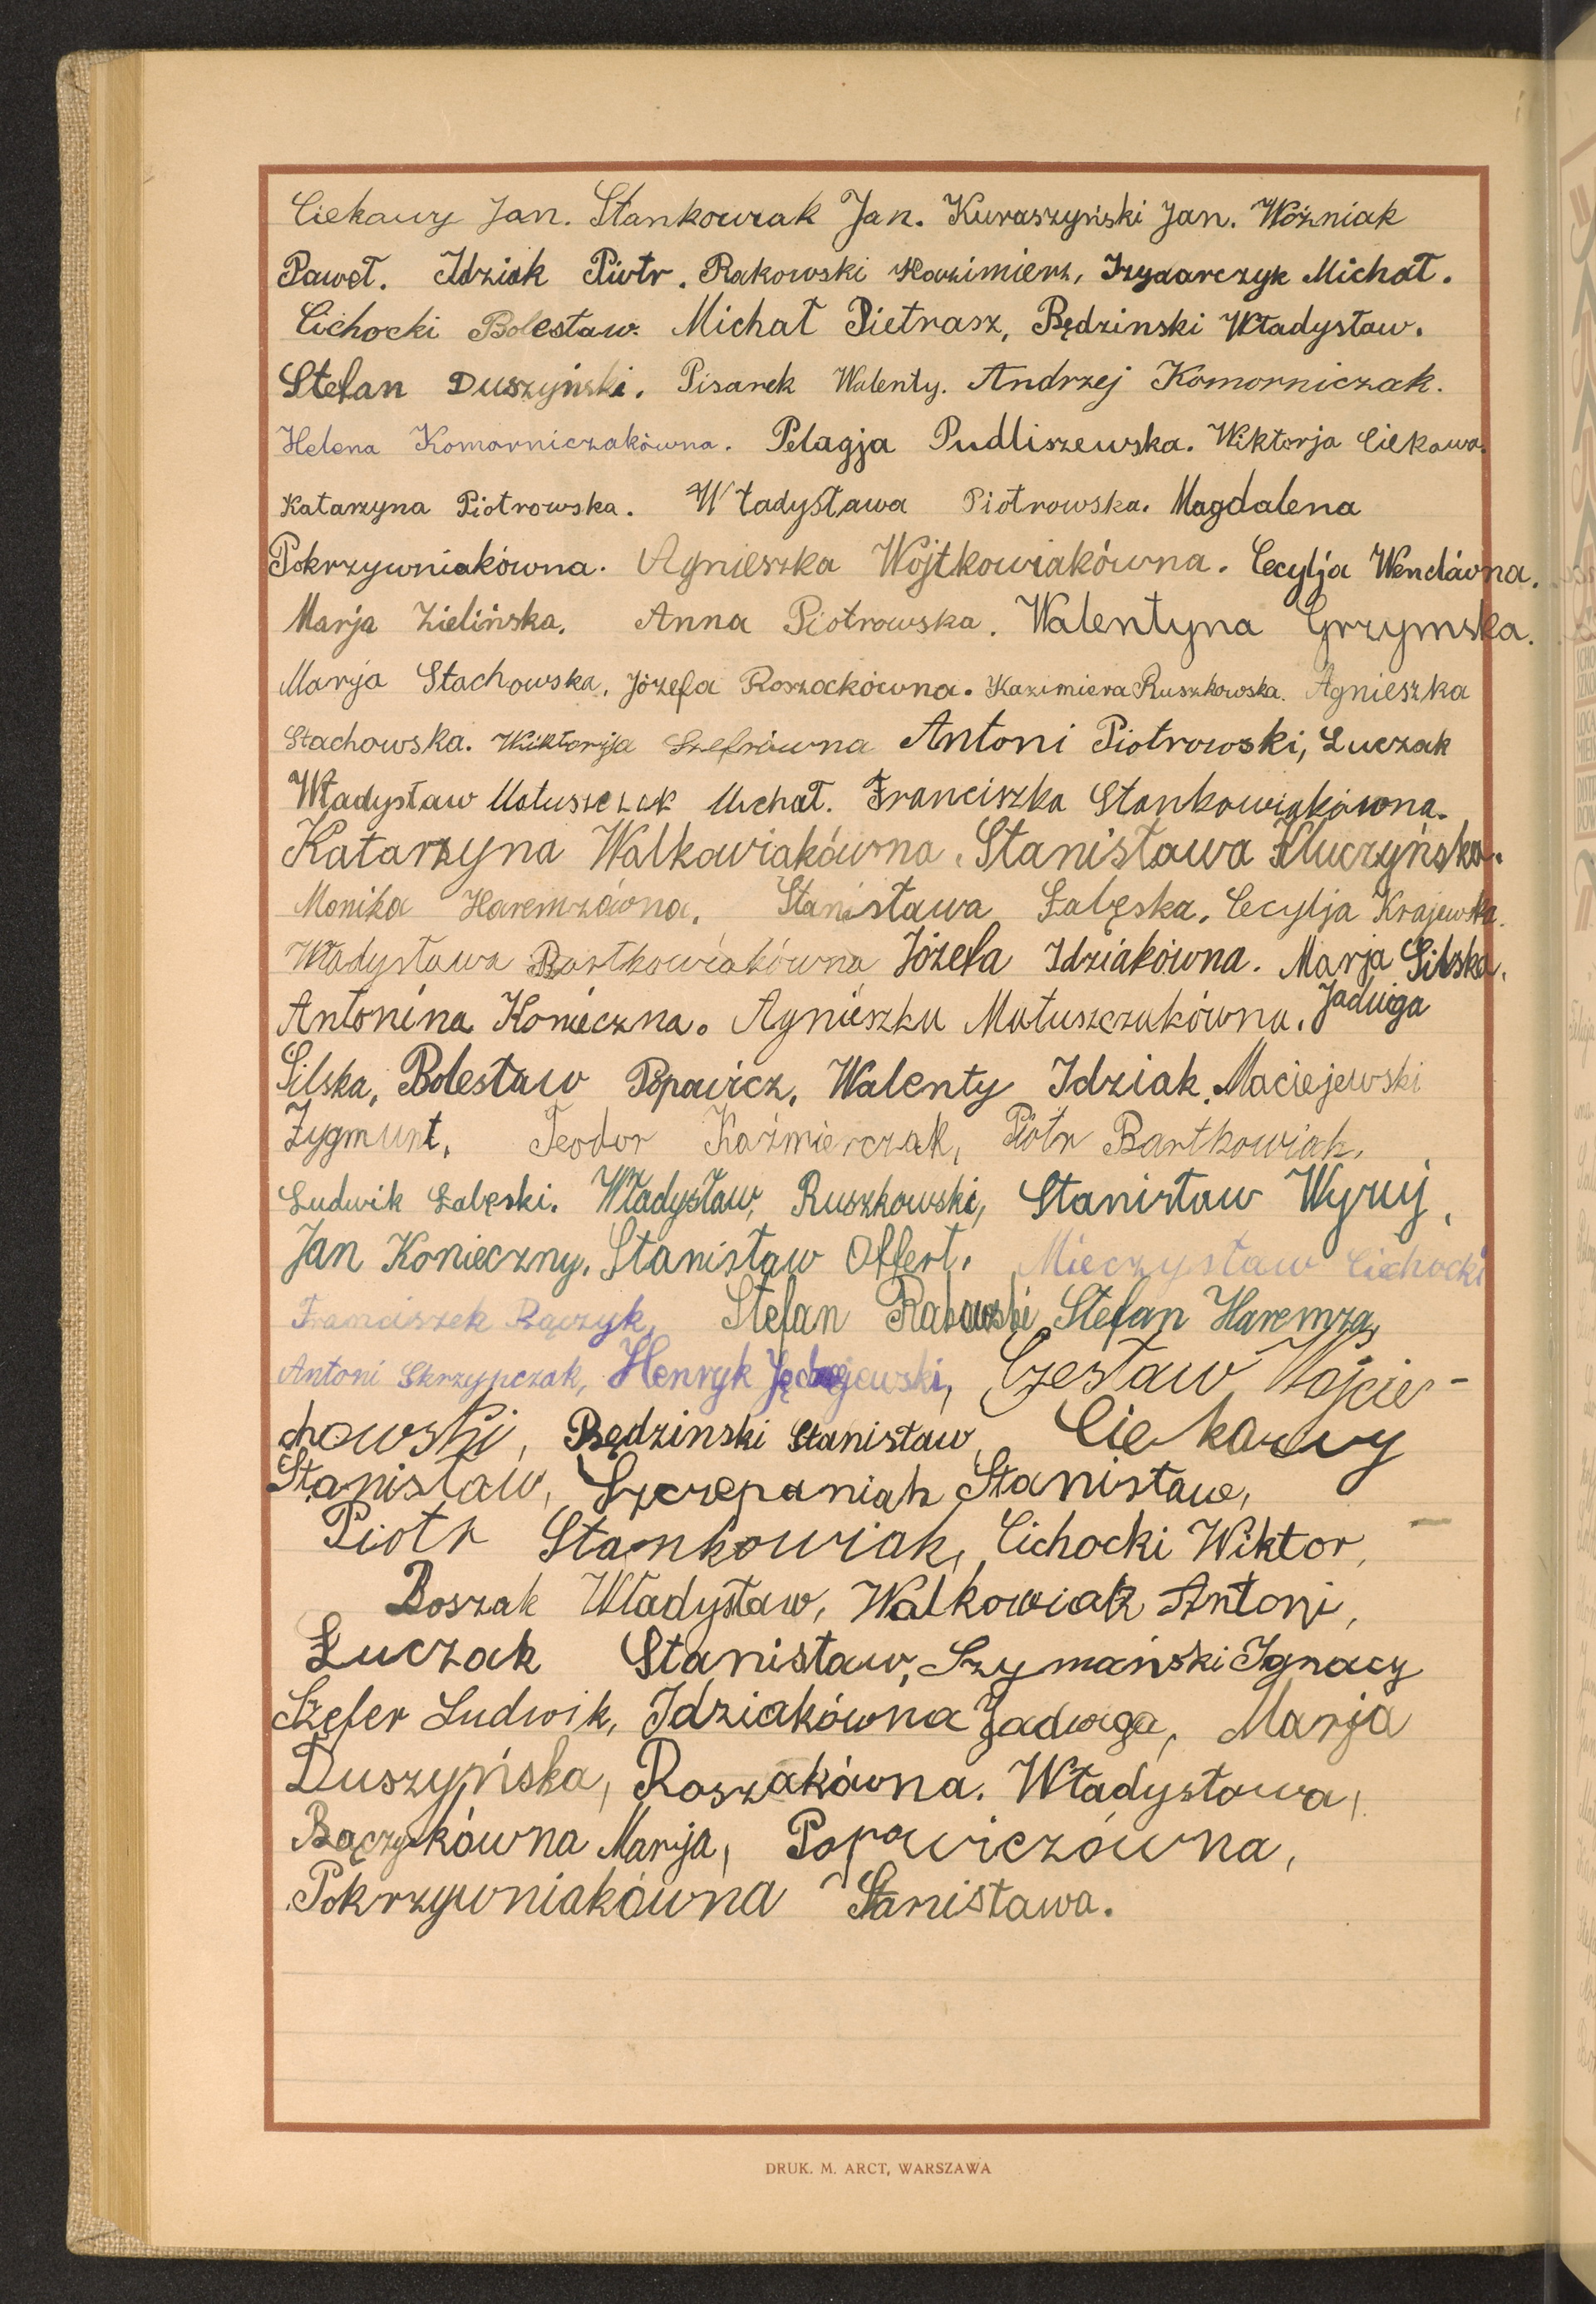 Ciekawy Jan. Stankowiak Jan. Kuraszyński Jan. Woźniak
Paweł. Idziak Piotr. Rakowski Kazimierz, Izydorczyk Michał.
Cichocki Bolesław. Michał Pietrasz, Będzinski Władysław.
Stefan Duszyński. Pisarek Walenty. Andrzej Komorniczak.
Helena Komorniczakówna. Pelagja Pudliszewska. Wiktorja Ciekawa.
Katarzyna Piotrowska. Władysława Piotrowska. Magdalena
Pokrzywniakówna. Agnieszka Wojtkowiakówna. Cecylja Wendówna.
Marja Zielińska. Anna Piotrowska. Walentyna Grzymska.
Marja Stachowska, Józefa Roszackówna. Kazimiera Ruszkowska. Agnieszka
Stachowska. Wiktorja Szefrówna Antoni Piotrowski, Łuczak
Władysław Matuszczak Michał. Franciszka Stankowiakówna.
Katarzyna Walkowiakówna. Stanisława Kluczyńska.
Monika Haremzówna, Stanisława Łabęska. Cecylja Krajewska.
Władysława Bartkowiakówna Józefa Idziakówna. Marja Silska.
Antonina Konieczna. Agnieszka Matuszczakówna. Jadwiga
Silska, Bolesław Popowicz, Walenty Idziak. Maciejewski
Zygmunt, Teodor Kaźmierczak, Piotr Bartkowiak,
Ludwik Łabęski. Władysław Ruszkowski, Stanisław Wyruj,
Jan Konieczny. Stanisław Offert. Mieczysław Cichocki
Franciszek Rączyk, Stefan Stefan Haremza,
Antoni Skrzypczak, Henryk Czesław Wojcie-
chowski, Będzinski Stanisław, Ciekawy
Stanisław, Szczepaniak Stanisław,
Piotr Stankowiak, Cichocki Wiktor,
Roszak Władysław, Walkowiak Antoni,
Łuczak Stanisław, Szymański Ignacy
Szefer Ludwik, Idziakówna Jadwiga, Marja
Duszyńska, Roszakówna. Władysława,
Rączykówna Marja, Popowiczówna,
Pokrzywniakówna Stanisława.
DRUK. M. ARCT, WARSZAWA